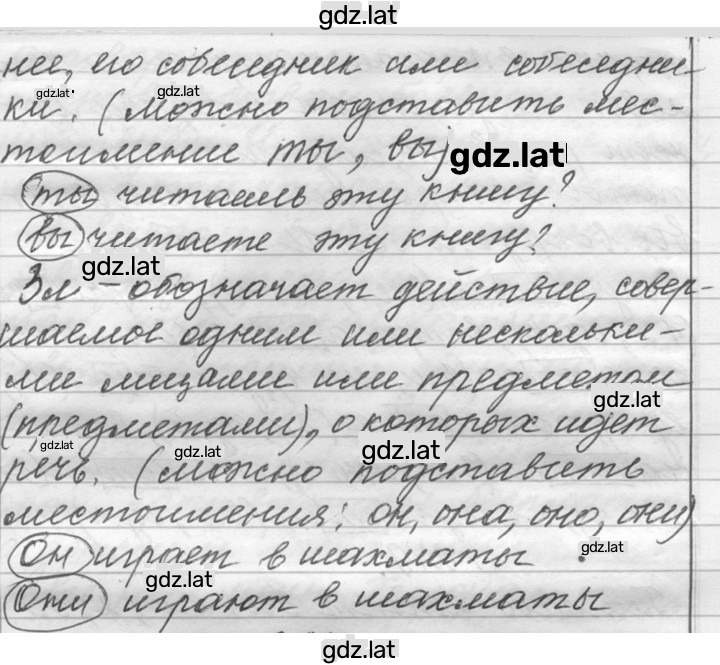 gdz.lat
нее, его собеседник или собеседни-
ки. (можно подставить мес-
тоимение ты, вы)
ты читаешь эту книгу?
вы читаете эту книгу?
3л - обозначает действие, совер-
шаемое одним или нескольки-
ми лицами или предметом
(предметами), о которых идет
речь. (можно подставить
местоимения: он, она, оно, они)
Он играет в шахматы
Они играют в шахматы
gdz.lat
gdz.lat
gdz.lat
gdz.lat
gdz.lat
gdz.lat
gdz.lat
gdz.lat
gdz.lat
gdz.lat
gdz.lat